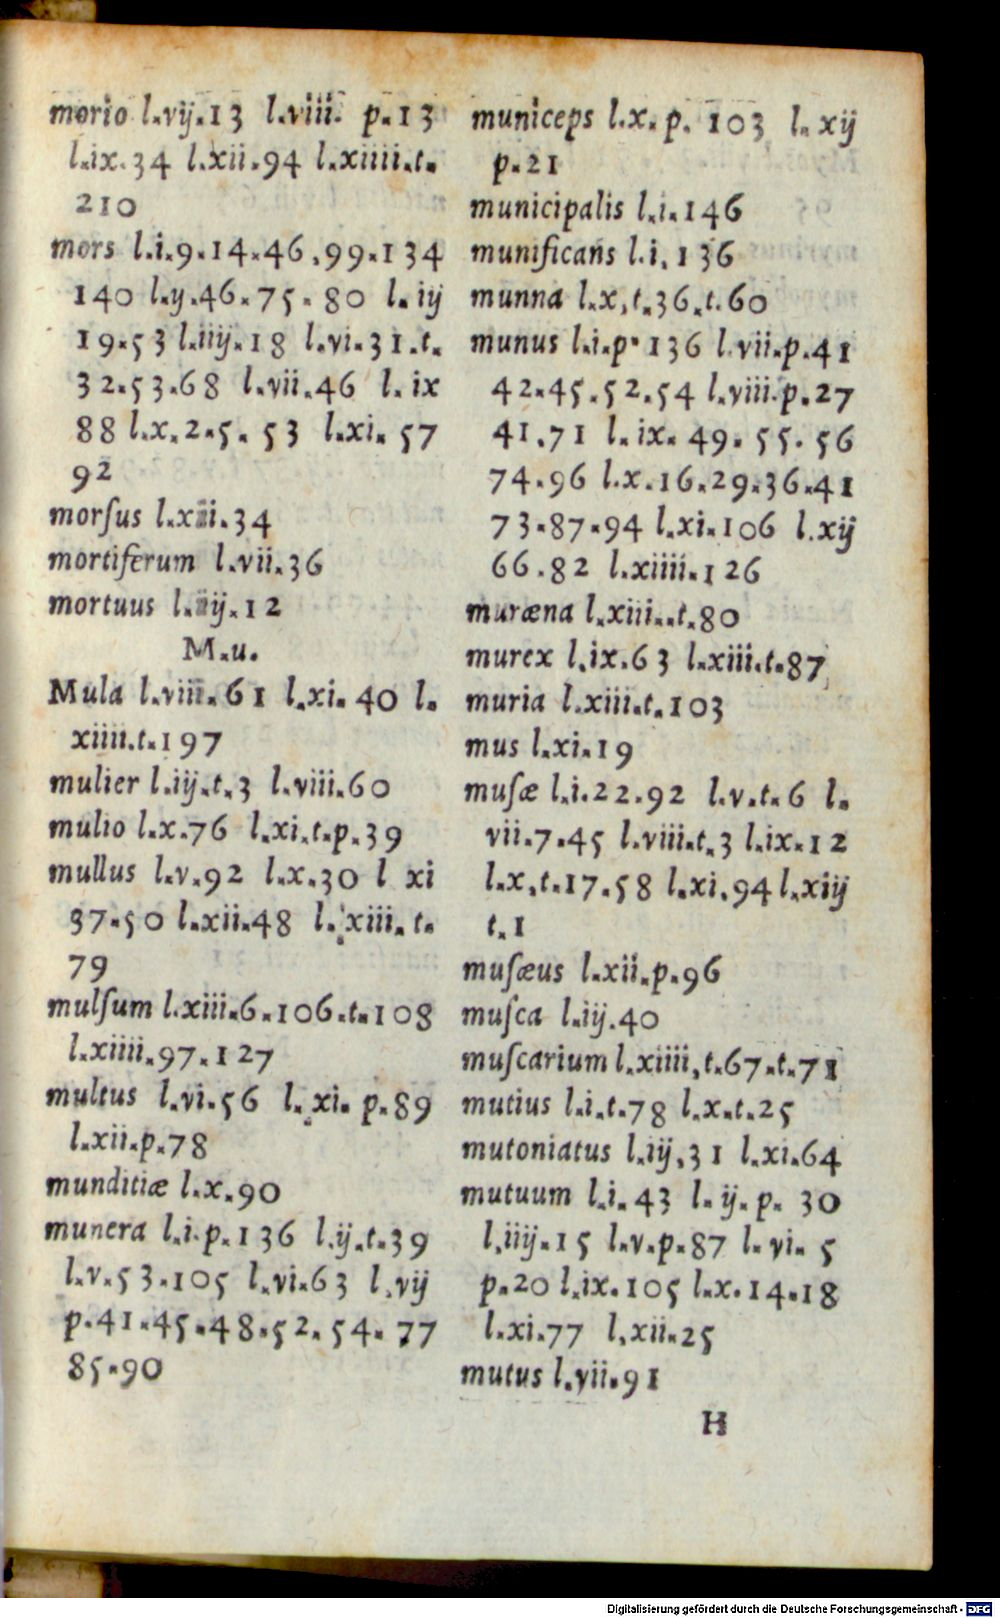 morio l.vij.13 l.viii. p.13
l.ix.34 l.xii.94 l.xiiii.t.
210
mors l.i.9.14.46.99.134
140 l.ij.46.75.80 l.iij
19.53 l.iiij.18 l.vi.31.t.
32.53.68 l.vii.46 l.ix
88 l.x.2.5.53 l.xi.57
92
morſus l.xiii.34
mortiferum l.vii.36
mortuus 12
M.u.
Mula l.viii.61 l.xi.40 l.
xiiii.t.197
mulier l.iij.t.3 l.viii.60
mulio l.x.76 l.xi.t.p.39
mullus l.v.92 l.x.30 l xi
37.50 l.xii.48 l.xiii.t.
79
mulſum l.xiii.6.106.t.108
l.xiiii.97.127
multus l.vi.56 l.xi.p.89
l.xii.p.78
munditiæ l.x.90
munera l.i.p.136 l.ij.t.39
l.v.53.105 l.vi.63 l.vij
p.41.45.48.52.54.77
85.90
municeps l.x.p.103 l.xij
p.21
municipalis l.i.146
munificans l.i.136
munna l.x.t.36.t.60
munus l.i.p.136 l.vii.p.41
42.45.52.54 l.viii.p.27
41.71 l.ix.49.55.56
74.96 l.x.16.29.36.41
73.87.94 l.xi.106 l.xij
66.82 l.xiiii.126
muræna l.xiii.t.80
murex l.ix.63 l.xiii.t.87
muria l.xiii.t.103
mus l.xi.19
muſæ l.i.22.92 l.v.t.6 l.
vii.7.45 l.viii.t.3 l.ix.12
l.x.t.17.58 l.xi.94 l.xiij
t.1
muſæus l.xii.p.96
muſca l.iij.40
muſcarium l.xiiii.t.67.t.71
mutius l.i.t.78 l.x.t.25
mutoniatus l.iij.31 l.xi.64
mutuum l.i.43 l.ij.p.30
l.iiij.15 l.v.p.87 l.vi.5
p.20 l.ix.105 l.x.14.18
l.xi.77 l.xii.25
mutus l.vii.91
H
Digitalisierung gefördert durch die Deutsche Forschungsgemeinschaft - DFG